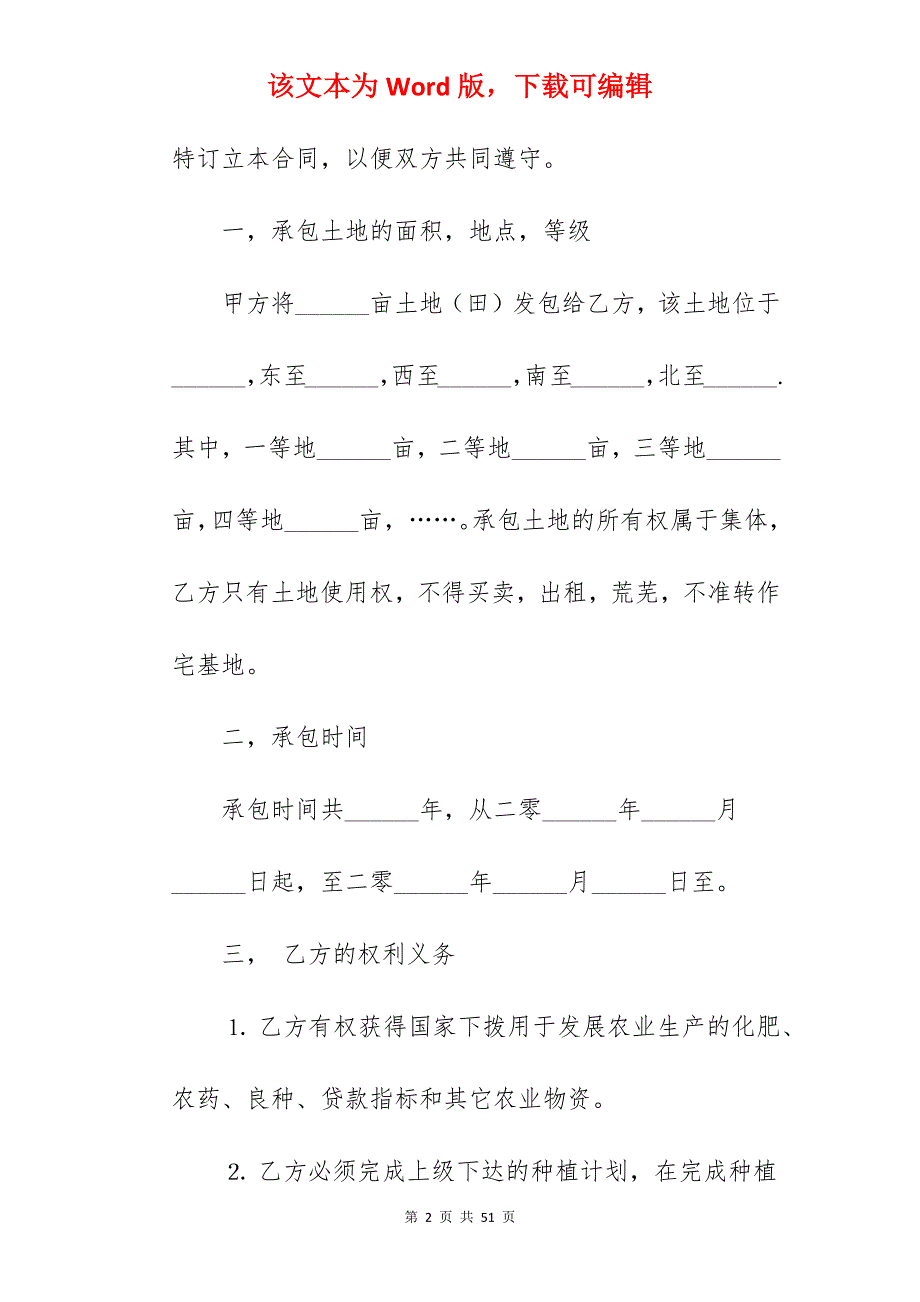 该文本为 Word 版，下载可编辑
特订立本合同，以便双方共同遵守。
一，承包土地的面积，地点，等级
甲方将______亩土地（田）发包给乙方，该土地位于
______，东至______，西至______，南至______，北至______.
其中，一等地______亩，二等地______亩，三等地______
亩，四等地______亩，……。承包土地的所有权属于集体，
乙方只有土地使用权，不得买卖，出租，荒芜，不准转作
宅基地。
二，承包时间
承包时间共______年，从二零______年______月
______日起，至二零______年______月______日至。
三， 乙方的权利义务
1. 乙方有权获得国家下拨用于发展农业生产的化肥、
农药、良种、贷款指标和其它农业物资。
2. 乙方必须完成上级下达的种植计划，在完成种植
第 2 页 共 51 页